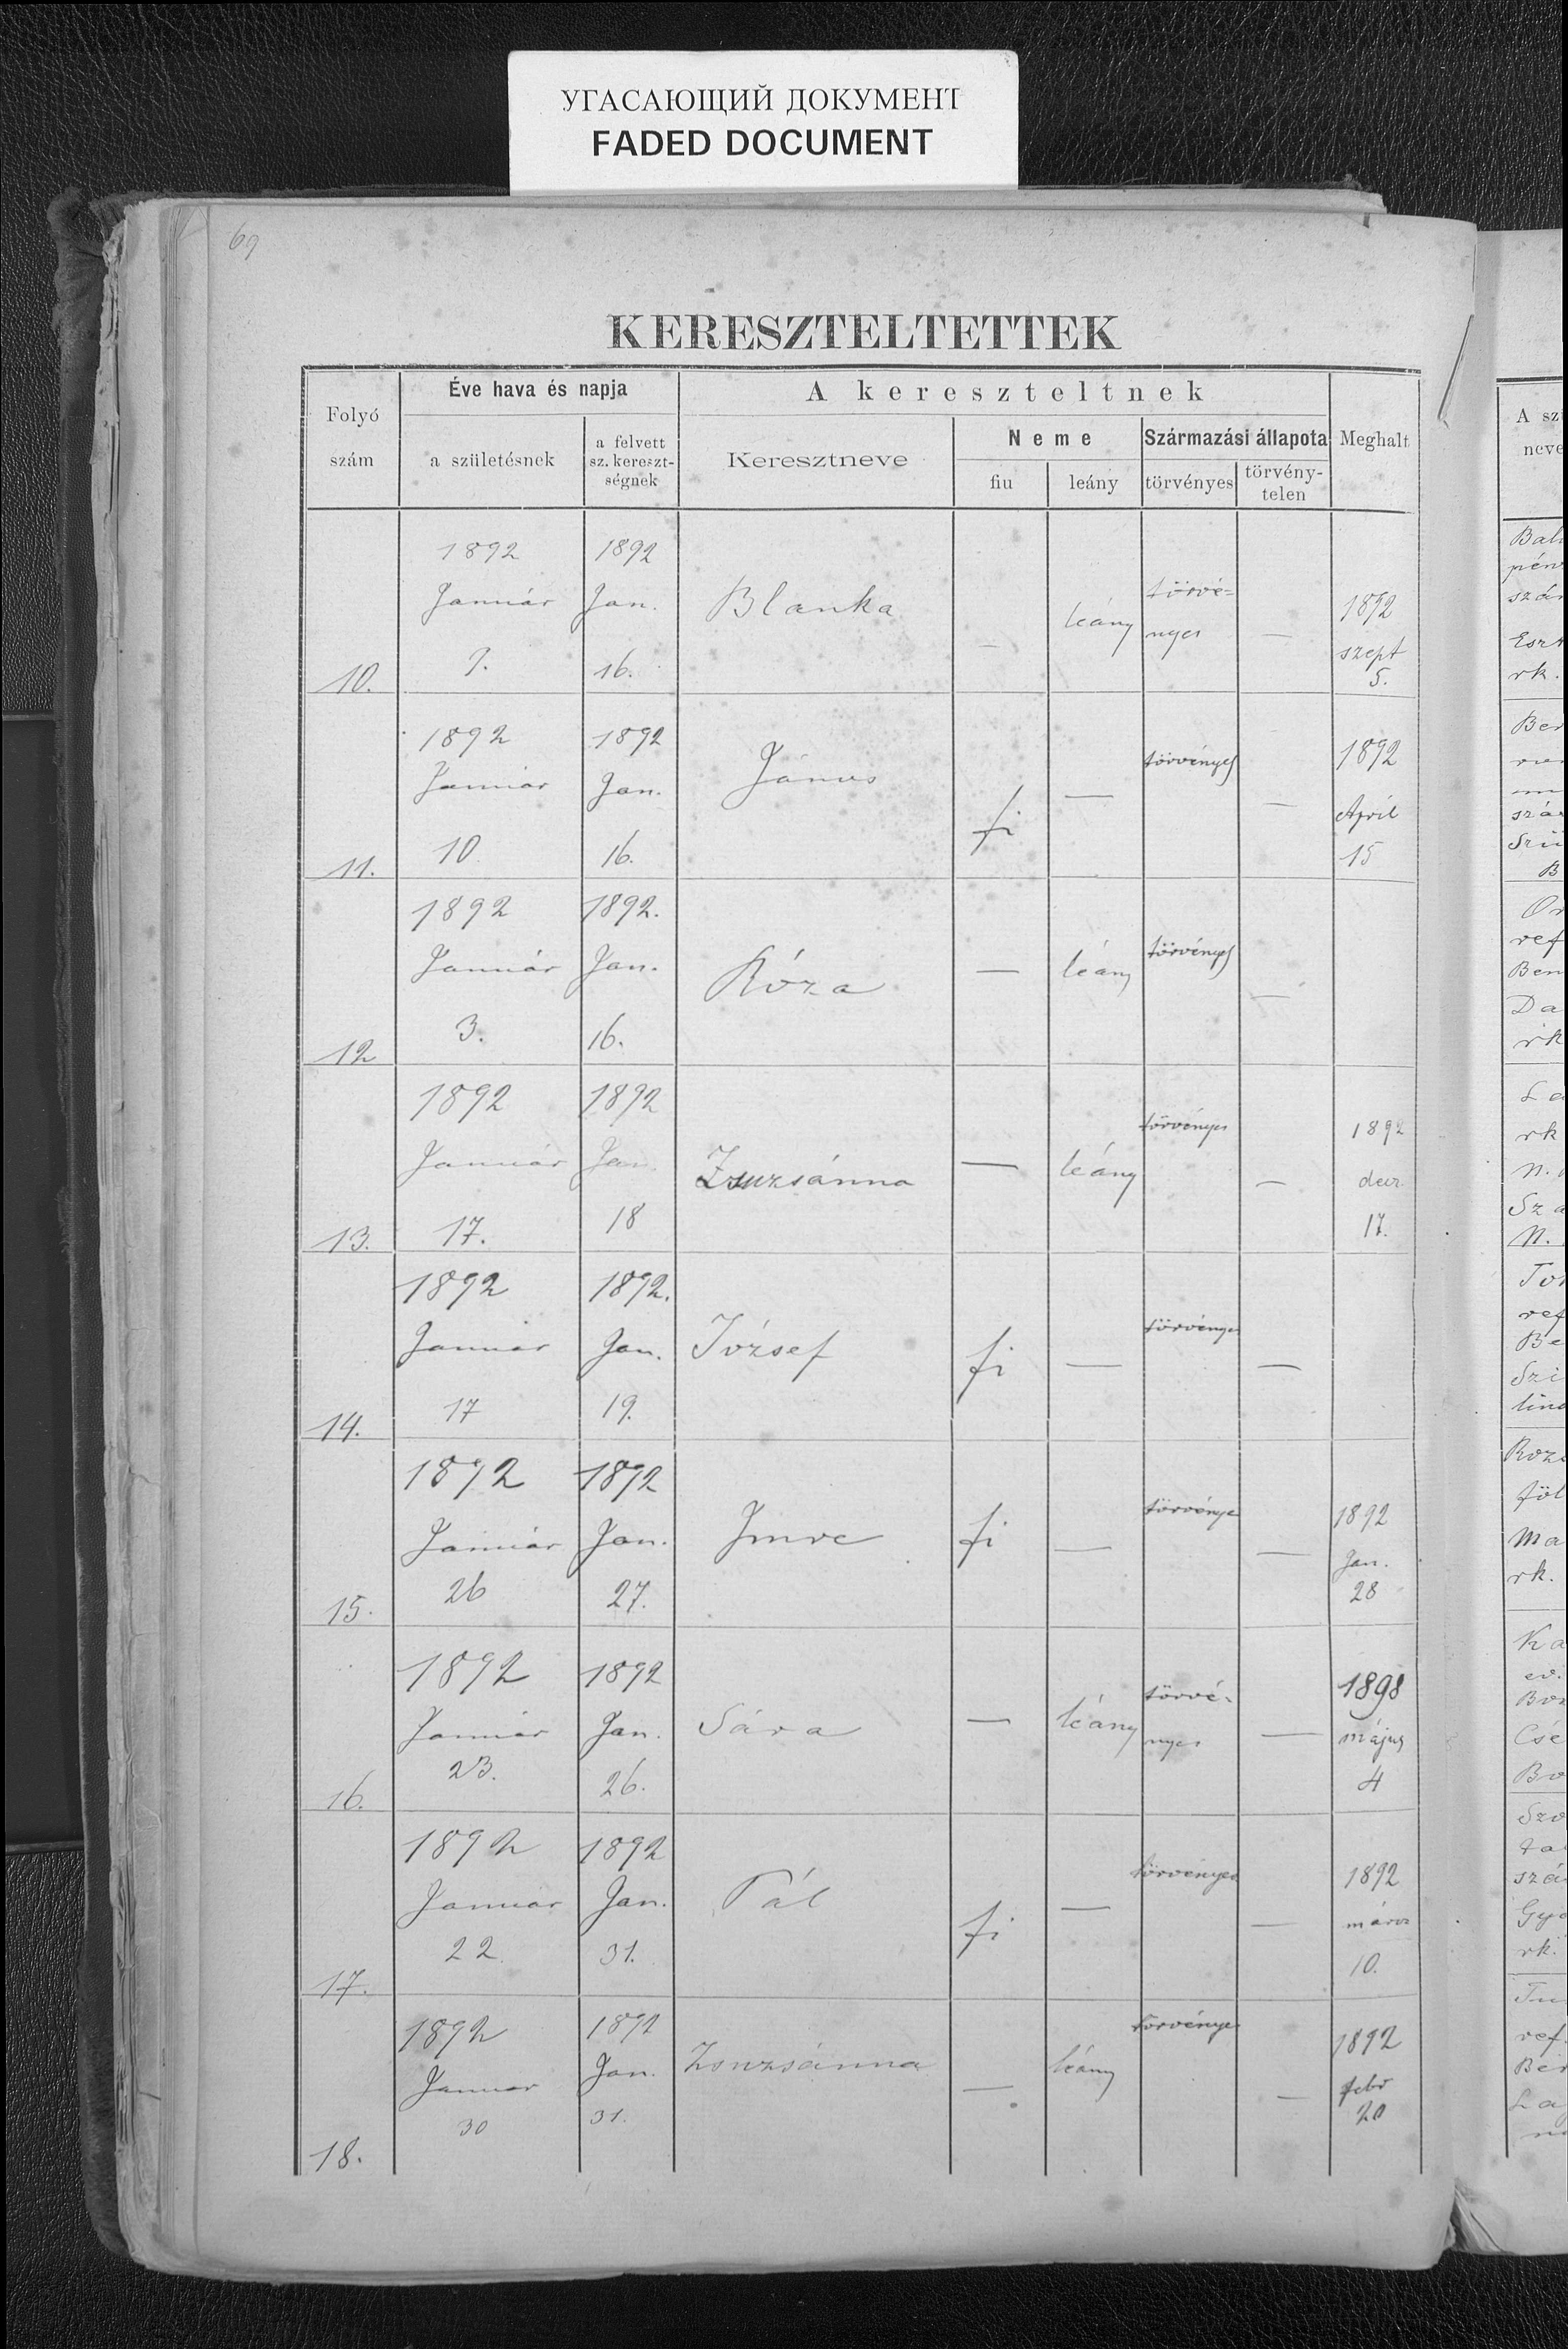 УГАСАЮЩИЙ ДОКУМЕНТ
FADED DOCUMENT
69
KERESZTELTETTEK
Folyó szám
Éve hava és napja
a születésnek
a felvett sz. kereszt-ségnek
A kereszteltnek
Keresztneve
Neme
fiu
leány
Származási állapota
törvényes
törvény-telen
Meghalt
10.
1892 Január 9.
1892 Jan. 16.
Blanka
—
leány
törvé=
nyes
—
1892 szept 5.
11.
1892 Január 10.
1892 Jan. 16.
János
fi
—
törvényes
—
1892 April 15
12
1892 Január 3.
1892. Jan. 16.
Róza
—
leány
törvényes
—
13.
1892 Január 17.
1892 Jan. 18
Zsuzsánna
—
leány
törvényes
—
1892 decz. 17.
14.
1892 Január 17
1892. Jan. 19.
József
fi
—
törvényes
—
15.
1892 Január 26
1892 Jan. 27.
Imre
fi
—
törvénye
—
1892 Jan. 28
16.
1892 Január 23.
1892 Jan. 26.
Sára
—
leány
törvé-
nyes
—
1898 május 4
17.
1892 Január 22.
1892 Jan. 31.
Pál
fi
—
törvényes
—
1892 márcz 10.
18.
1892 Januar 30
1892 Jan. 31.
Zsuzsánna
—
leány
törvénye
—
1892 febr 20
A sz
neve
pén
szá
Eszt
rk.
Ber
szá
Szü
B
ref
Ben
Da
rk
La
rk
N.
Sza
N.
ref
Be
Szi
föl
Ma
rk.
Ka
ev.
Csé
szá
rk.
ref.